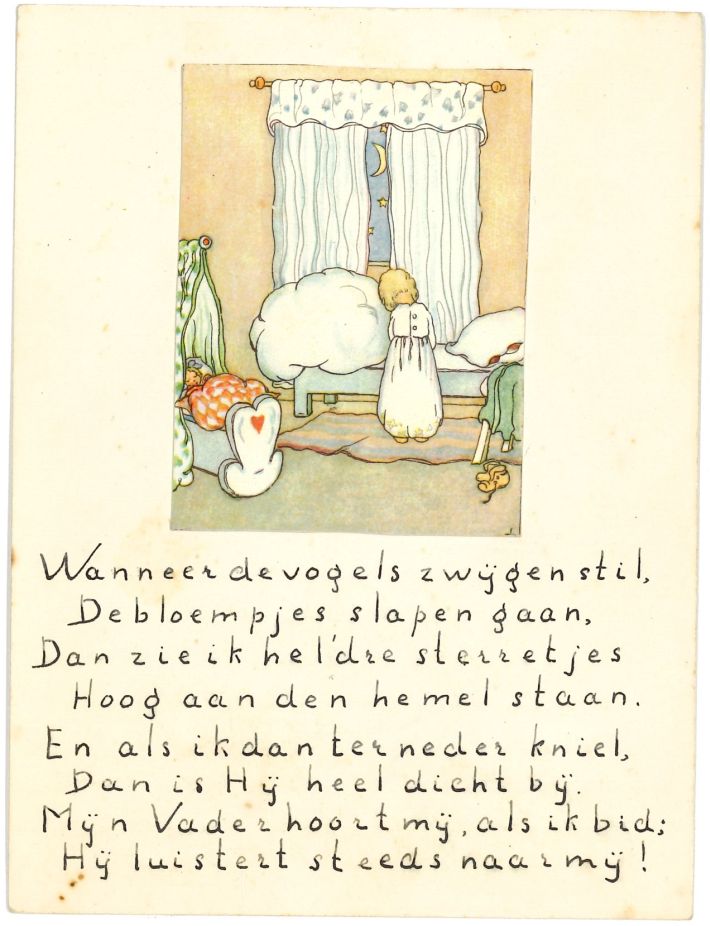 Wanneer de vogels zwijgen stil,
De bloempjes slapen gaan,
Dan zie ik hel'dre sterretjes
Hoog aan den hemel staan.
En als ik dan ter neder kniel,
Dan is Hij heel dicht bij.
Mijn Vader hoort mij, als ik bid;
Hij luistert steeds naar mij!